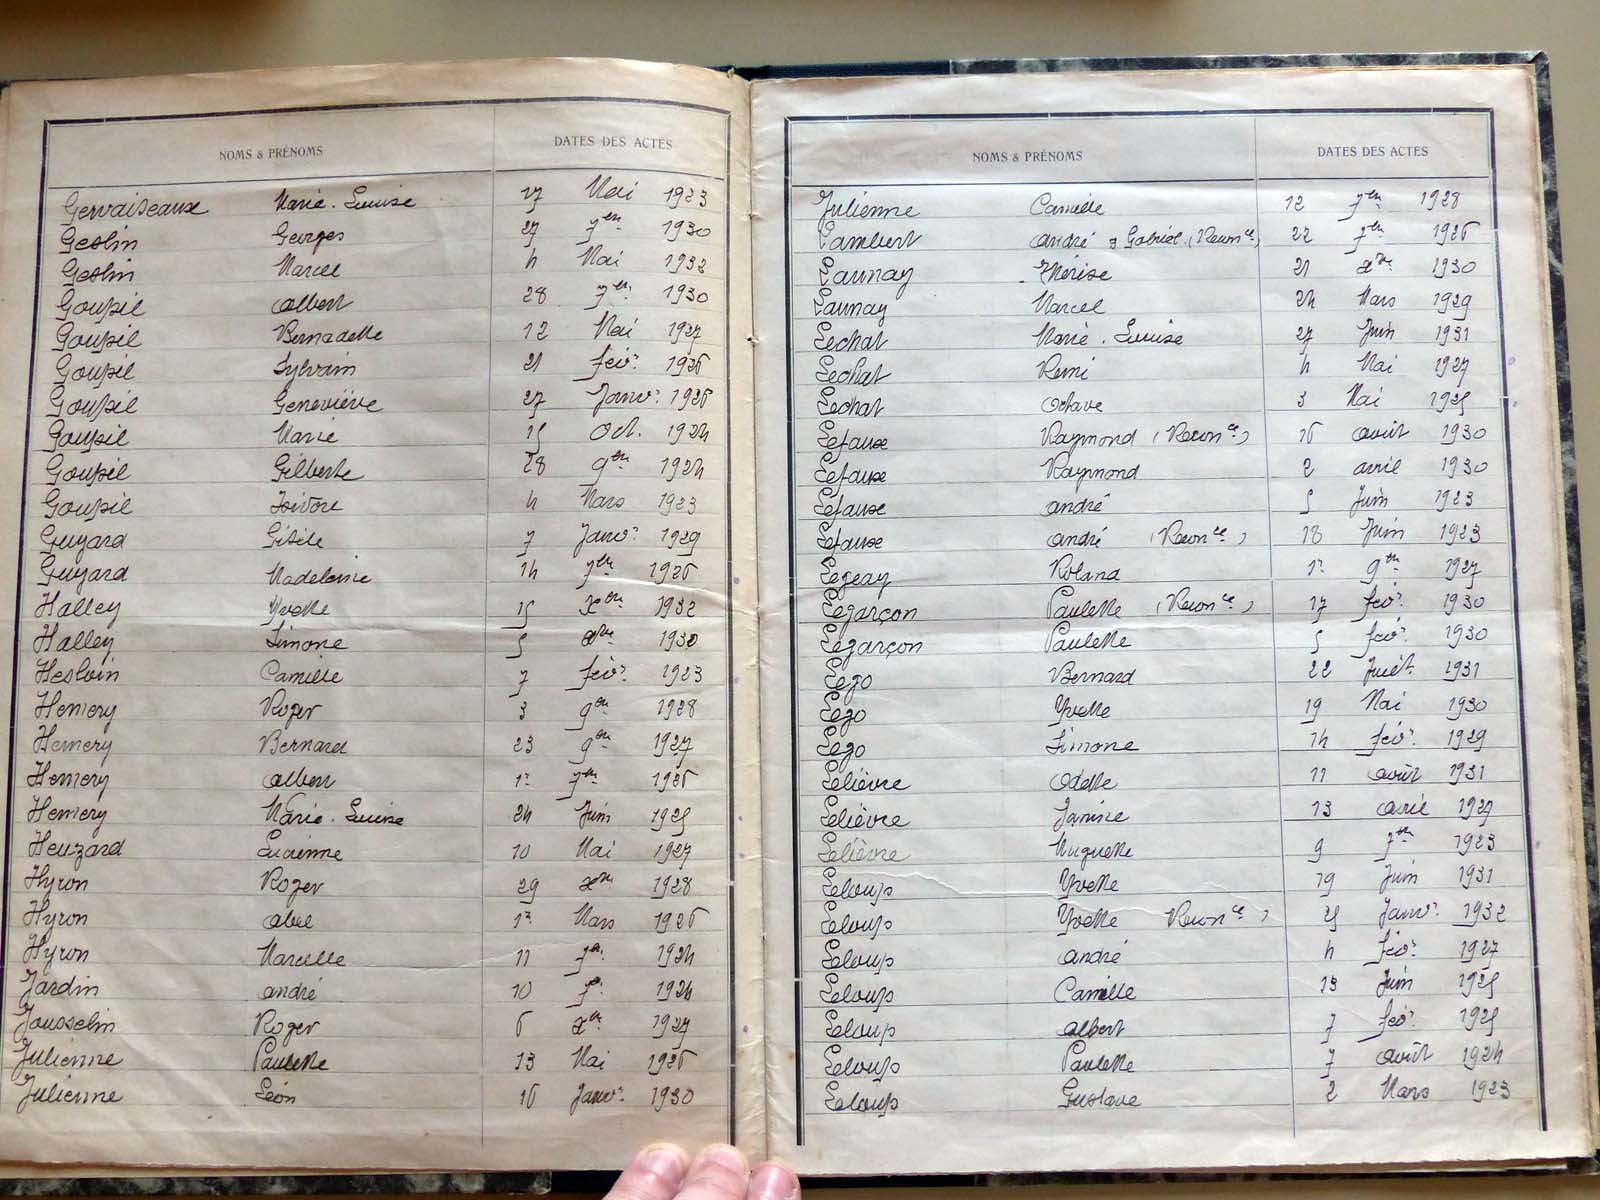 NOMS & PRÉNOMS DATES DES ACTES
Gervaiseaux Marie-Louise 17 Mai 1923
Geslin Georges 27 7bre 1930
Geslin Marcel 4 Mai 1932
Goupil Albert 28 7bre 1930
Goupil Bernadette 12 Mai 1927
Goupil Sylvain 21 fevr 1926
Goupil Geneviève 27 Janvr 1926
Goupil Marie 15 Oct. 1924
Goupil Gilberte 28 9bre 1924
Goupil Isidore 4 Mars 1923
Guyard Gisèle 7 Janvr 1929
Guyard Madeleine 14 7bre 1926
Halley Yvette 15 Xbre 1932
Halley Simone 5 Xbre 1930
Hesloin Camille 7 fevr 1923
Hemery Roger 3 9bre 1928
Hemery Bernard 23 9bre 1927
Hemery Albert 1r 7bre 1926
Hemery Marie-Louise 24 Juin 1925
Heuzard Lucienne 10 Mai 1927
Hyron Roger 29 Xbre 1928
Hyron Abel 1r Mars 1926
Hyron Marcelle 11 1924
Jardin André 10 1924
Jousselin Roger 6 Xbre 1927
Julienne Paulette 13 Mai 1926
Julienne Léon 16 Janvr 1930
NOMS & PRÉNOMS DATES DES ACTES
Julienne Camille 12 7bre 1928
Lambert André & Gabriel (Reconce) 22 7bre 1926
Launay Thérèse 21 Xbre 1930
Launay Marcel 24 Mars 1929
Lechat Marie-Louise 27 Juin 1931
Lechat Remi 4 Mai 1927
Lechat Octave 3 Mai 1925
Lefaux Raymond (Reconce) 16 août 1930
Lefaux Raymond 2 avril 1930
Lefaux André 5 Juin 1923
Lefaux André (Reconce) 18 Juin 1923
Legeay Roland 1r 9bre 1927
Legarçon Paulette (Reconce) 17 fevr 1930
Legarçon Paulette 5 fevr 1930
Lego Bernard 22 Juilt 1931
Lego Yvette 19 Mai 1930
Lego Simone 14 fevr 1929
Lelièvre Odette 11 août 1931
Lelièvre Janine 13 avril 1927
Lelièvre Huguette 9 7bre 1923
Leloup Yvette 19 Juin 1931
Leloup Yvette Reconce) 25 Janvr 1932
Leloup André 4 fevr 1927
Leloup Camille 13 Juin 1925
Leloup Albert 7 fevr 1925
Leloup Paulette 7 août 1924
Leloup Gustave 2 Mars 1923